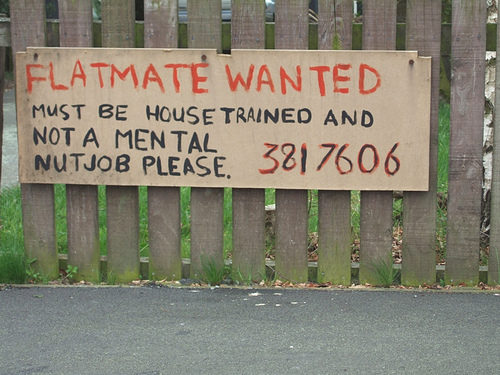 FLATMATE WANTED
MUST BE HOUSETRAINED AND
NOT A MENTAL
NUTJOB PLEASE. 3817606